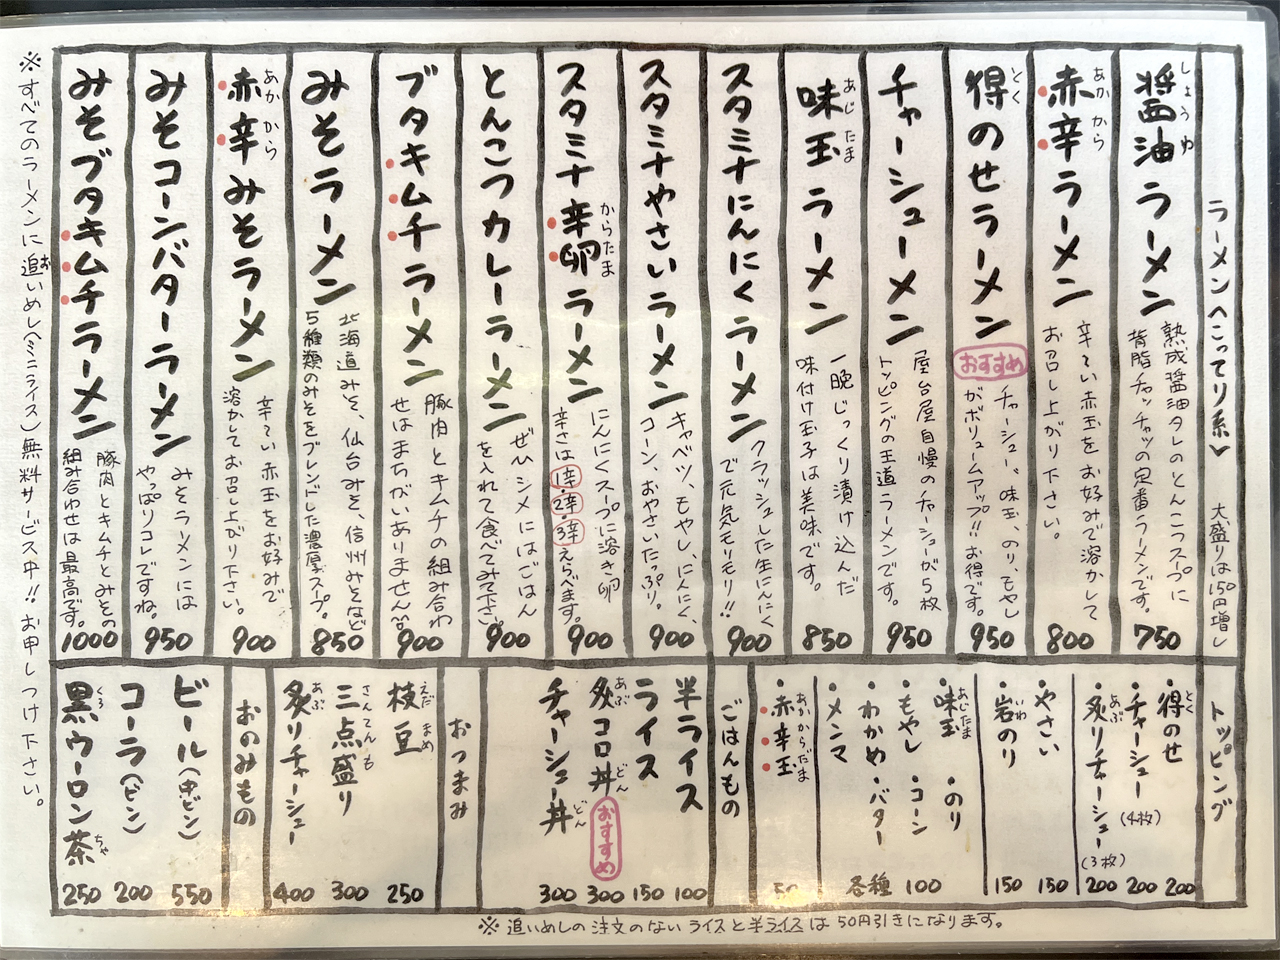 ラーメン(こってり系) 大盛りは150円増し
醤油ラーメン
しょうゆ
熟成醤油タレのとんこつスープに
背脂チャッチャッの定番ラーメンです。
750
赤辛ラーメン
あか から
辛〜い赤玉をお好みで溶かして
お召し上がり下さい。
800
得のせラーメン
とく
おすすめ
チャーシュー、味玉、のり、もやし
がボリュームアップ!!お得です。
950
チャーシューメン
屋台屋自慢のチャーシューが5枚
トッピングの王道ラーメンです。
950
味玉ラーメン
あじ たま
一晩じっくり漬け込んだ
味付け玉子は美味です。
850
スタミナにんにくラーメン
クラッシュした生にんにく
で元気モリモリ!!
900
スタミナやさいラーメン
キャベツ、もやし、にんにく、
コーン、おやさいたっぷり。
900
スタミナ辛卵ラーメン
からたま
にんにくスープに溶き卵
辛さは1辛・2辛・3辛えらべます。
900
とんこつカレーラーメン
ぜひシメにはごはん
を入れて食べてみて下さい。
900
ブタキムチラーメン
豚肉とキムチの組み合わ
せはまちがいありません
900
みそラーメン
北海道みそ、仙台みそ、信州みそなど
5種類のみそをブレンドした濃厚スープ。
850
赤辛みそラーメン
あか から
辛〜い赤玉をお好みで
溶かしてお召し上がり下さい。
900
みそコーンバターラーメン
みそラーメンには
やっぱりコレですね。
950
みそブタキムチラーメン
豚肉とキムチとみその
組み合わせは最高です。
1000
※すべてのラーメンに追いめし(ミニライス)無料サービス中!!お申しつけ下さい。
お
トッピング
・得のせ 200
とく
・チャーシュー(4枚) 200
・炙りチャーシュー(3枚) 200
あぶ
・やさい 150
・岩のり 150
いわ
・味玉 ・のり
あじたま
・もやし ・コーン
・わかめ ・バター
・メンマ
各種 100
・赤辛玉 50
あかからだま
ごはんもの
半ライス 100
ライス 150
炙コロ丼 おすすめ 300
あぶ どん
チャーシュー丼 300
どん
おつまみ
枝豆 250
えだ まめ
三点盛り 300
さんてんも
炙りチャーシュー 400
あぶ
おのみもの
ビール(中ビン) 550
コーラ(ビン) 200
黒ウーロン茶 250
くろ ちゃ
※追いめしの注文のないライスと半ライスは50円引きになります。